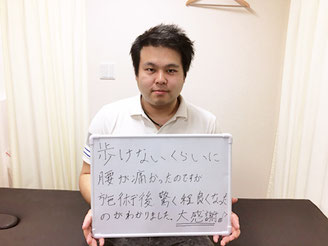 歩けないくらいに
腰が痛かったのですが
施術後驚く程良くなった
のがわかりました。大感謝。